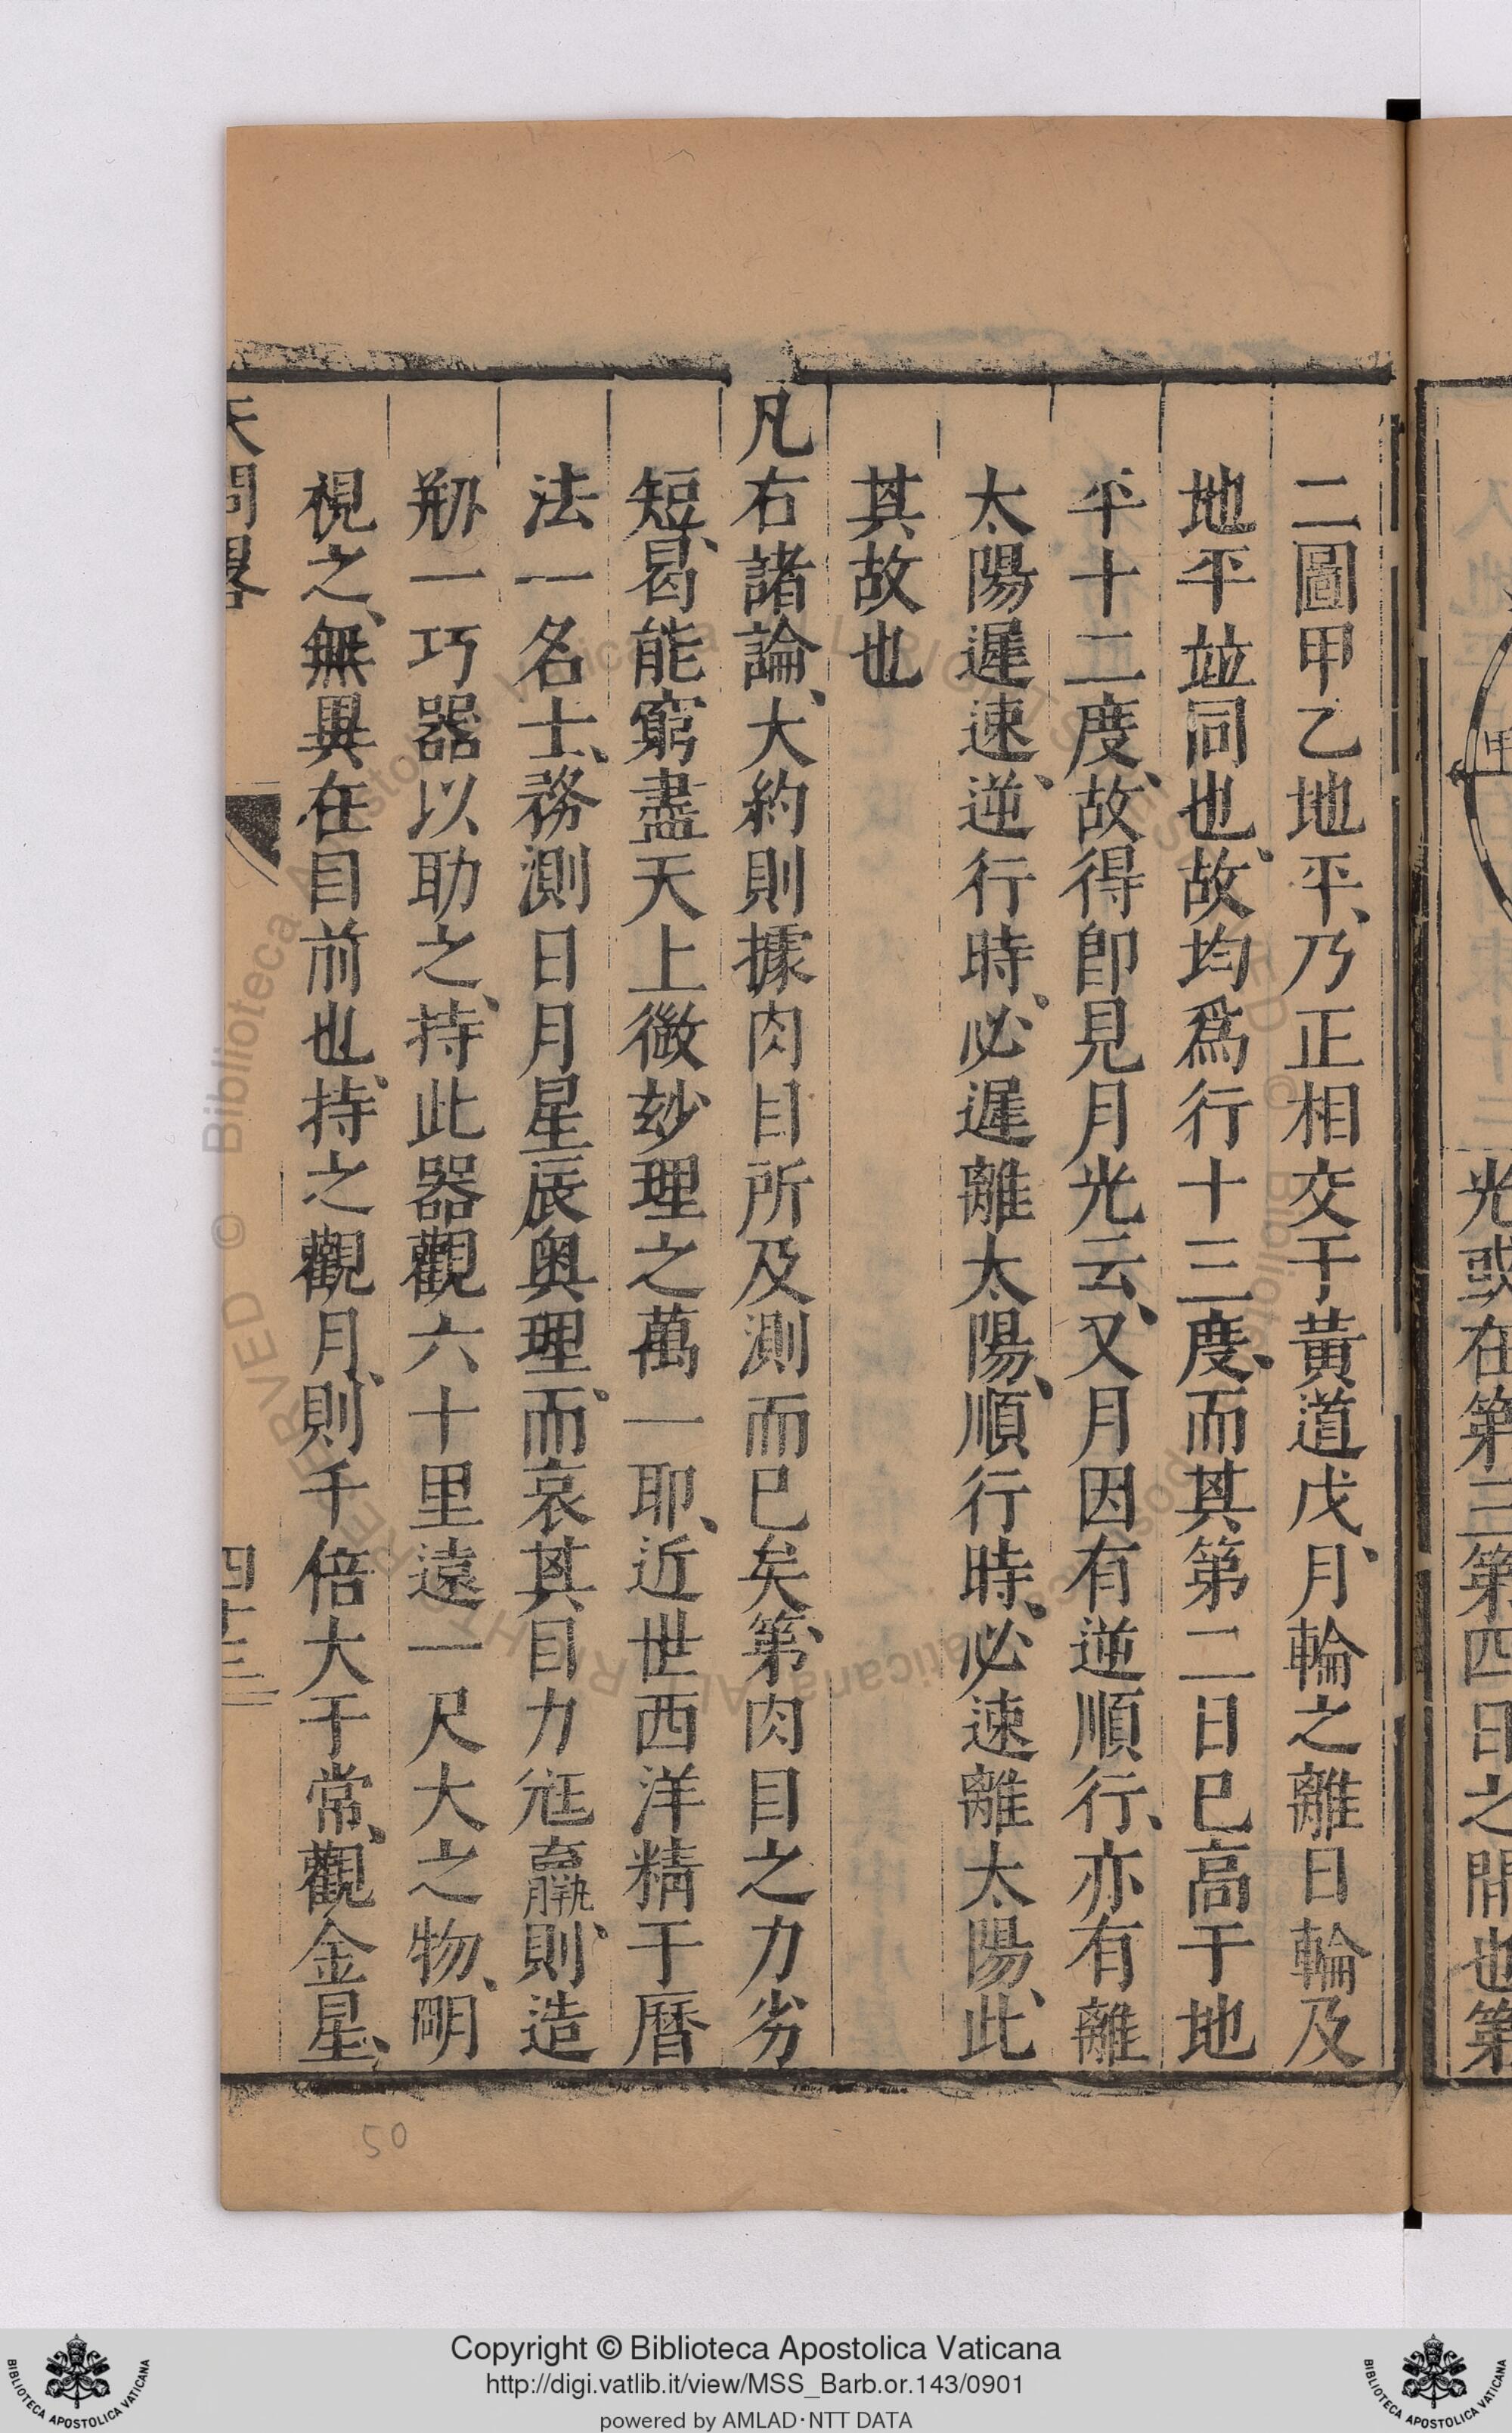 二圖甲乙地平、乃正相交于黃道戊、月輪之離日輪及
地平竝同也、故均爲行十三度、而其第二日巳高于地
平十二度、故得卽見月光云、又月因有逆順行、亦有離
太陽遲速、逆行時、必遲離太陽、順行時、必速離太陽、此
其故也
凡右諸論、大約則據肉目所及測而巳矣、第肉目之力劣
短、曷能窮盡天上微玅理之萬一耶、近世西洋精于曆
法一名士、務測日月星辰奥理、而哀其目力尫羸、則造
剏一巧器以助之、持此器觀六十里遠一尺大之物、明
視之、無異在目前也、持之觀月、則千倍大于常、觀金星、
天問畧
四十三
光或在第三第四日之間也第
甲
50
Copyright © Biblioteca Apostolica Vaticana
http://digi.vatlib.it/view/MSS_Barb.or.143/0901
powered by AMLAD·NTT DATA
BIBLIOTECA APOSTOLICA VATICANA
BIBLIOTECA APOSTOLICA VATICANA